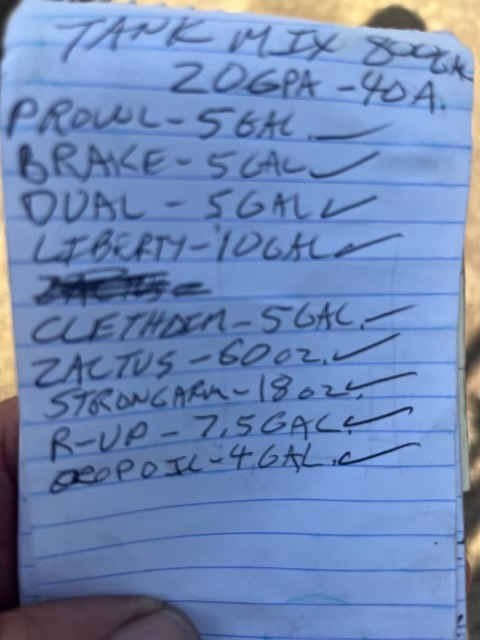 TANK MIX 800GAL
20GPA-40A.
PROWL-5GAL.
BRAKE-5GAL
DUAL-5GAL
LIBERTY-10GAL
CLETHDIM-5GAL.
ZACTUS-60oz.
STRONGARM-18oz.
R-UP-7.5GAL.
CROPOIL-4GAL.